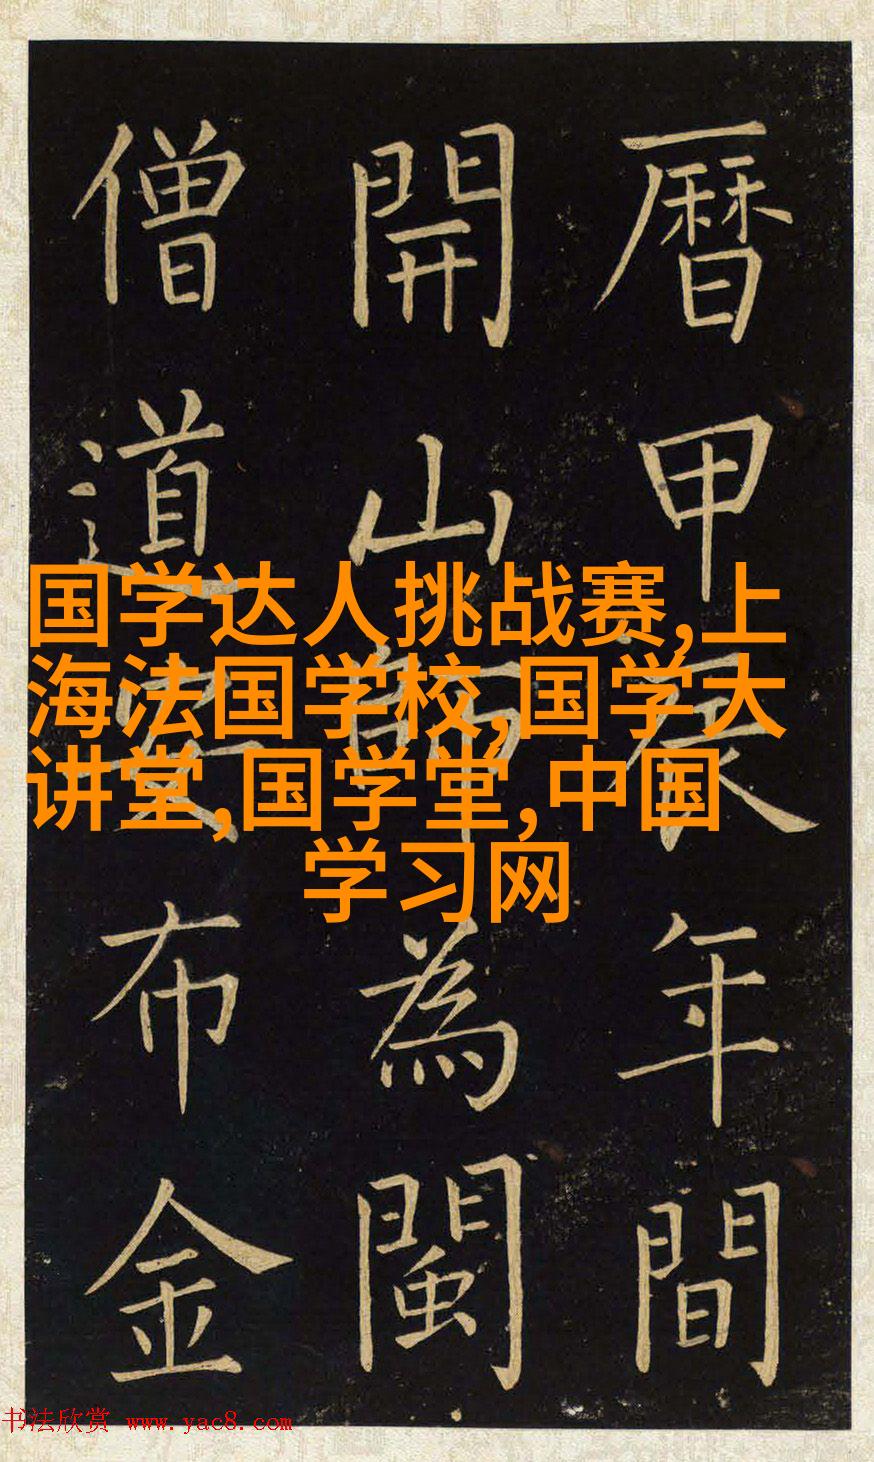 曆甲辰年間
開山師為閩
僧道安布金
国学达人挑战赛,上
海法国学校,国学大
讲堂,国学堂,中国
学习网
书法欣赏 www.yac8.com